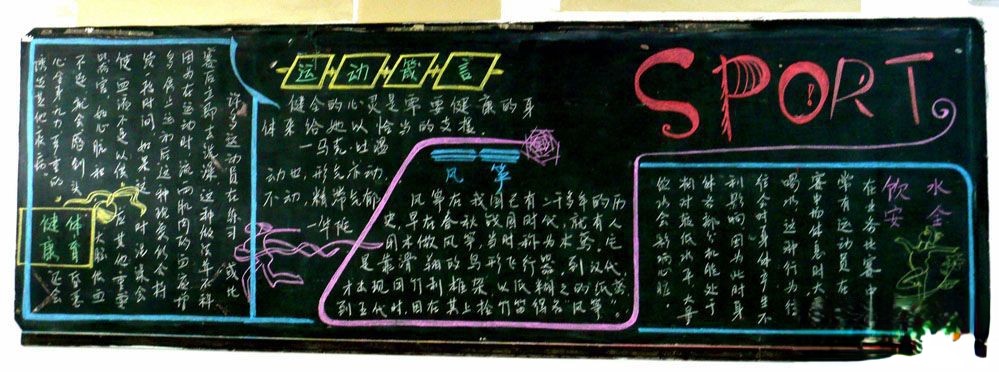 SPORT
运动箴言
健全的心灵是需要健康的身
体来给她以恰当的支撑.
一马克·吐温
动也,形气亦动.
不动,精滞气郁
一华佗
许多运动员在练习或比
赛后立即去洗澡 这种做法是不科
因为在运动时 流向肌肉的血液增
多 停止运动后 这种现象仍会持
续一段时间 如果这时洗澡会
使血液不足以供应其他重要
器官 如心脏和大脑供血
不足 就会感到头
心 全身无力 严重的还会
诱发其他疾病.
体育
健康
风筝
风筝在我国已有二千多年的历
史,早在春秋战国时代,就有人
用木做风筝,当时称为木鸢,它
是靠滑翔的鸟形飞行器,到汉代,
才出现用竹制框架,以纸糊之的纸鸢
到五代时,因在其上拴竹笛得名"风筝"。
饮水安全
在体育比赛中
常有运动员在
赛中场休息时大
喝水 这种行为往
往会对身体产生不
利影响 因为此时身
体各部机能处于
相对较低水平 大量
饮水会影响心脏.